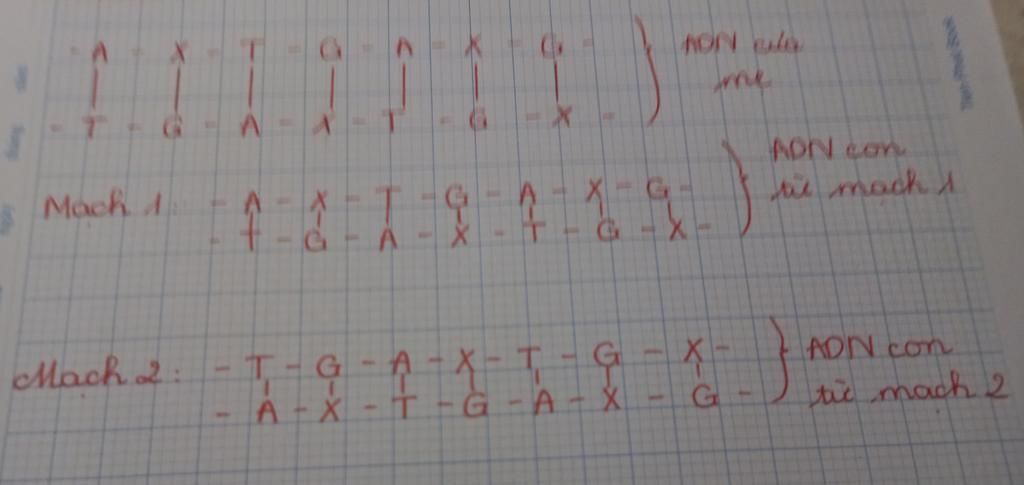 - A - X - T - G - A - X - G -
ADN của
mẹ
- T - G - A - X - T - G - X -
ADN con
từ mạch 1
Mạch 1: - A - X - T - G - A - X - G -
- T - G - A - X - T - G - X -
Mạch 2: - T - G - A - X - T - G - X -
ADN con
từ mạch 2
- A - X - T - G - A - X - G -